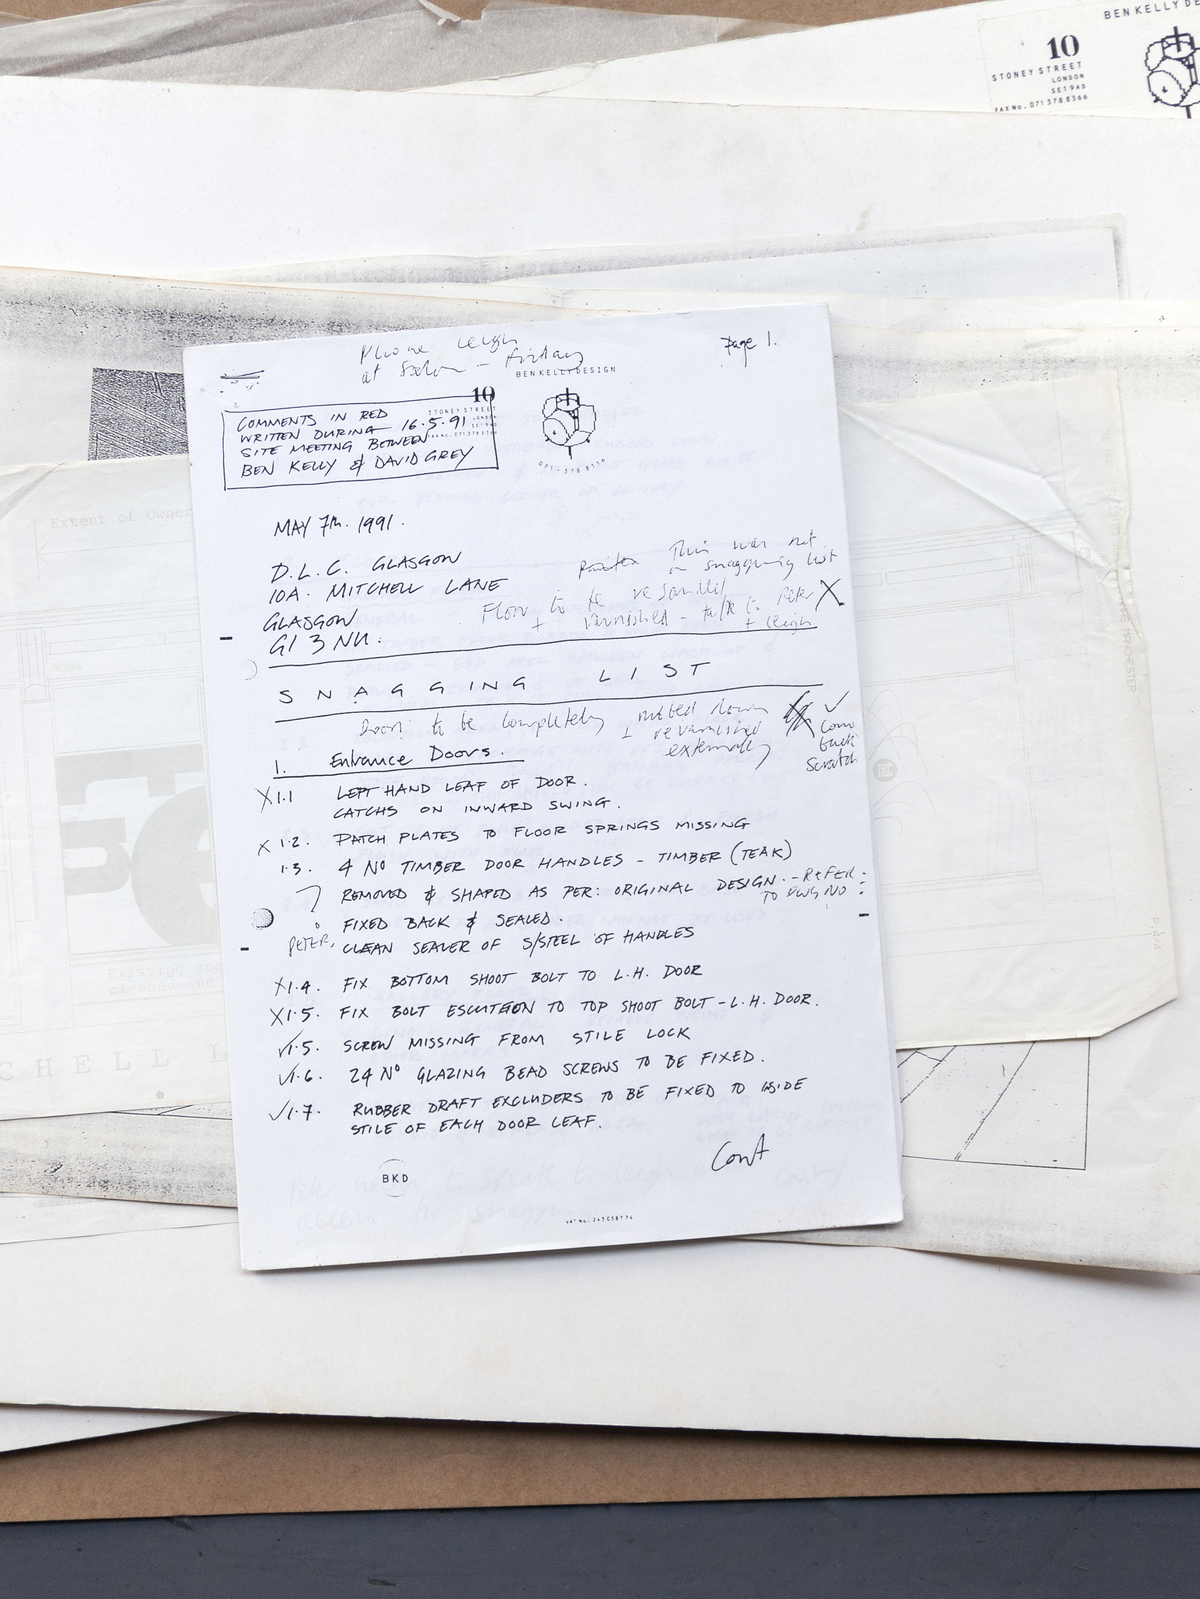 BEN KELLY DE
10
STONEY STREET
LONDON
SE1 9AD
FAX No. 071 378 8366
Phone Leigh
at Salon - friday
Page 1.
BEN KELLY DESIGN
10
STONEY STREET
LONDON
SE1 9AD
071-378 8116
COMMENTS IN RED
WRITTEN DURING 16.5.91
SITE MEETING BETWEEN
BEN KELLY & DAVID GREY
MAY 7th. 1991.
D.L.C. GLASGOW
10A. MITCHELL LANE
GLASGOW
G1 3NU.
This was not
on snagging list
Floor to be resanded
+ varnished - talk to Peter X
+ Leigh
SNAGGING LIST
Door to be completely rubbed down
+ revarnished
externally
✓
Come
back
Scratch
1. Entrance Doors.
X 1.1 LEFT HAND LEAF OF DOOR.
CATCHS ON INWARD SWING.
X 1.2. PATCH PLATES TO FLOOR SPRINGS MISSING
1.3. 4 No TIMBER DOOR HANDLES - TIMBER (TEAK)
REMOVED & SHAPED AS PER: ORIGINAL DESIGN. - REFER
TO DWG NO :
FIXED BACK & SEALED.
PETER. CLEAN SEALER OF S/STEEL OF HANDLES
X 1.4. FIX BOTTOM SHOOT BOLT TO L.H. DOOR
X 1.5. FIX BOLT ESCUTEON TO TOP SHOOT BOLT - L.H. DOOR.
✓ 1.5. SCREW MISSING FROM STILE LOCK
✓ 1.6. 24 No GLAZING BEAD SCREWS TO BE FIXED.
✓ 1.7. RUBBER DRAFT EXCLUDERS TO BE FIXED TO INSIDE
STILE OF EACH DOOR LEAF.
Cont
BKD
Extent of Owner
CHELL L